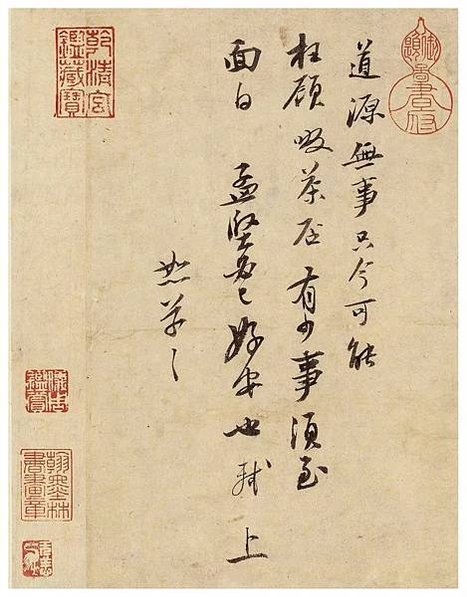 道源無事只今可能
枉顧啜茶否有少事須至
面白 孟堅必已好安也 軾上
恕草〻
乾清宮
鑑藏寶
儀周
鑑賞
翰墨林
書畫章